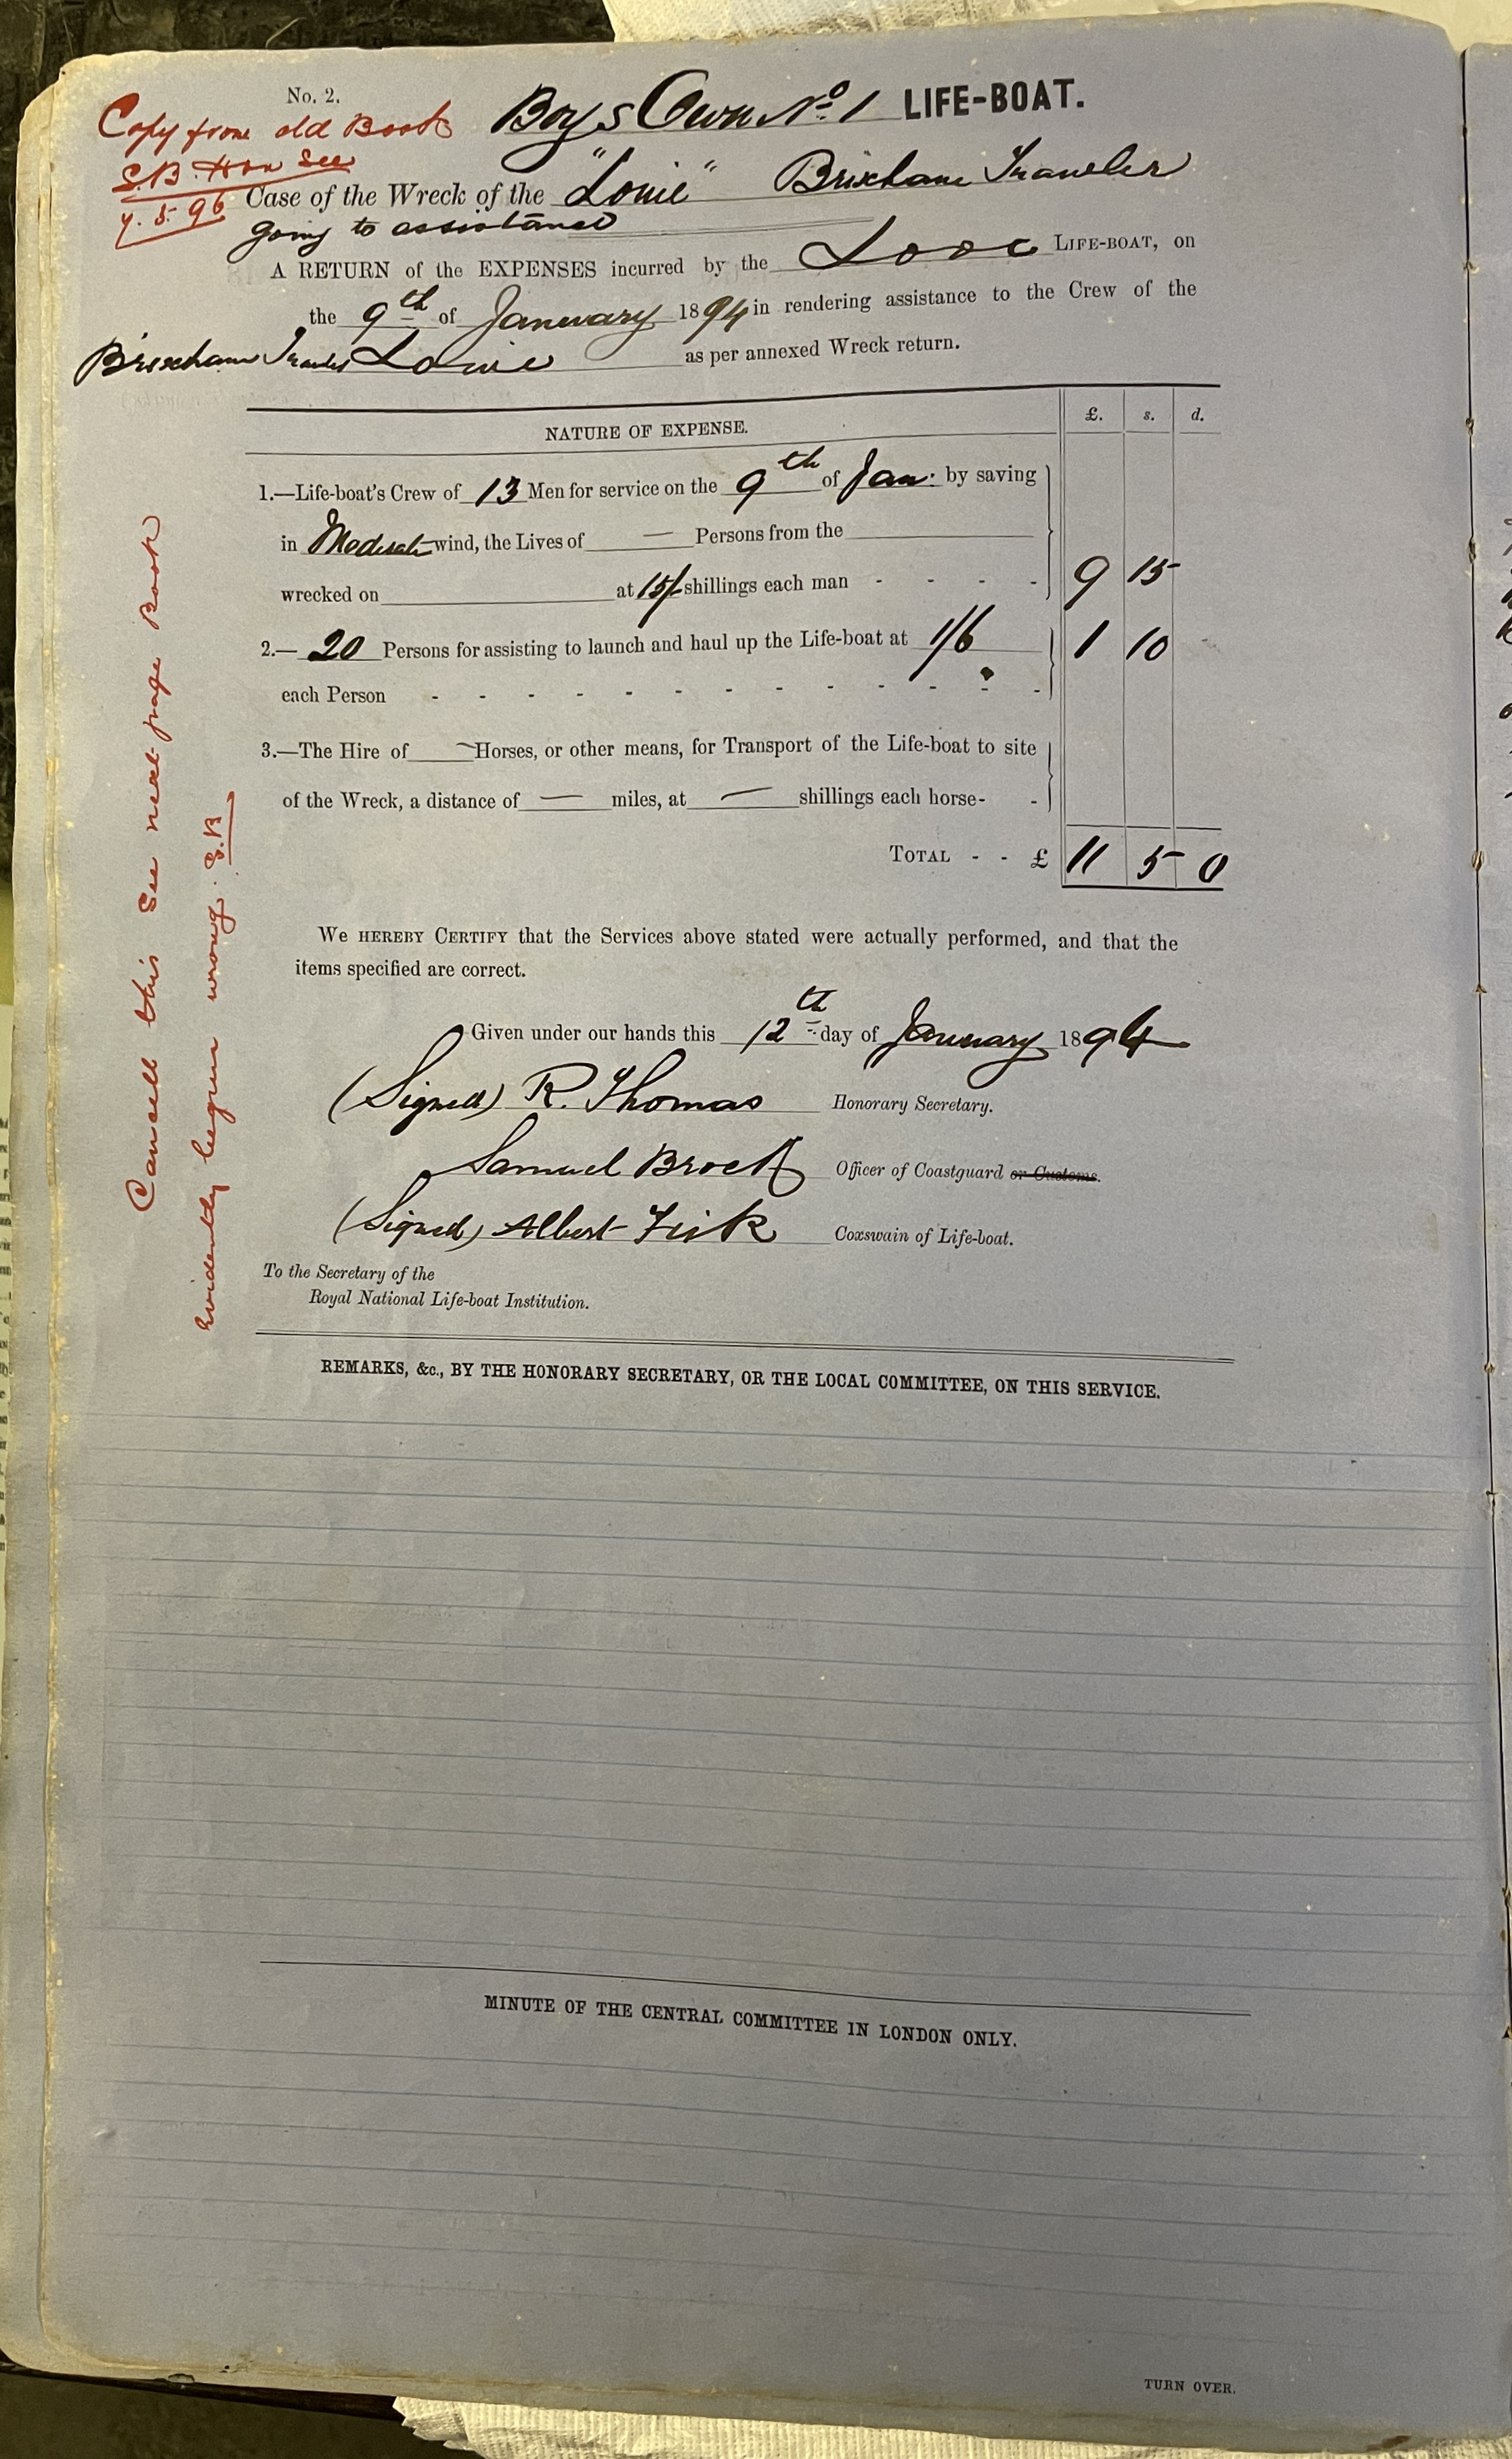 No. 2.
Copy from old Book
S.B. Hon Sec
7. 5. 96
Boys Own No 1 LIFE-BOAT.
Case of the Wreck of the "Louie" Brixham Trawler
going to assistance
A RETURN of the EXPENSES incurred by the Looe LIFE-BOAT, on
the 9th of Januuary 1894 in rendering assistance to the Crew of the
Brixham Trawler Louie as per annexed Wreck return.
NATURE OF EXPENSE. £. s. d.
1.—Life-boat's Crew of 13 Men for service on the 9th of Jan. by saving
in Moderate wind, the Lives of — Persons from the
wrecked on at 15/- shillings each man - - - - 9 15
2.— 20 Persons for assisting to launch and haul up the Life-boat at 1/6 1 10
each Person - - - - - - - - - - - - -
3.—The Hire of — Horses, or other means, for Transport of the Life-boat to site
of the Wreck, a distance of — miles, at — shillings each horse- -
TOTAL - - £ 11 5 0
Cancell this See next page Book
evidently begun wrong. S.B
We HEREBY CERTIFY that the Services above stated were actually performed, and that the
items specified are correct.
Given under our hands this 12th day of Januuary 1894
(Signed) R. Thomas Honorary Secretary.
Samuel Brock Officer of Coastguard or Customs.
(Signed) Albert Fisk Coxswain of Life-boat.
To the Secretary of the
Royal National Life-boat Institution.
REMARKS, &c., BY THE HONORARY SECRETARY, OR THE LOCAL COMMITTEE, ON THIS SERVICE.
MINUTE OF THE CENTRAL COMMITTEE IN LONDON ONLY.
TURN OVER.